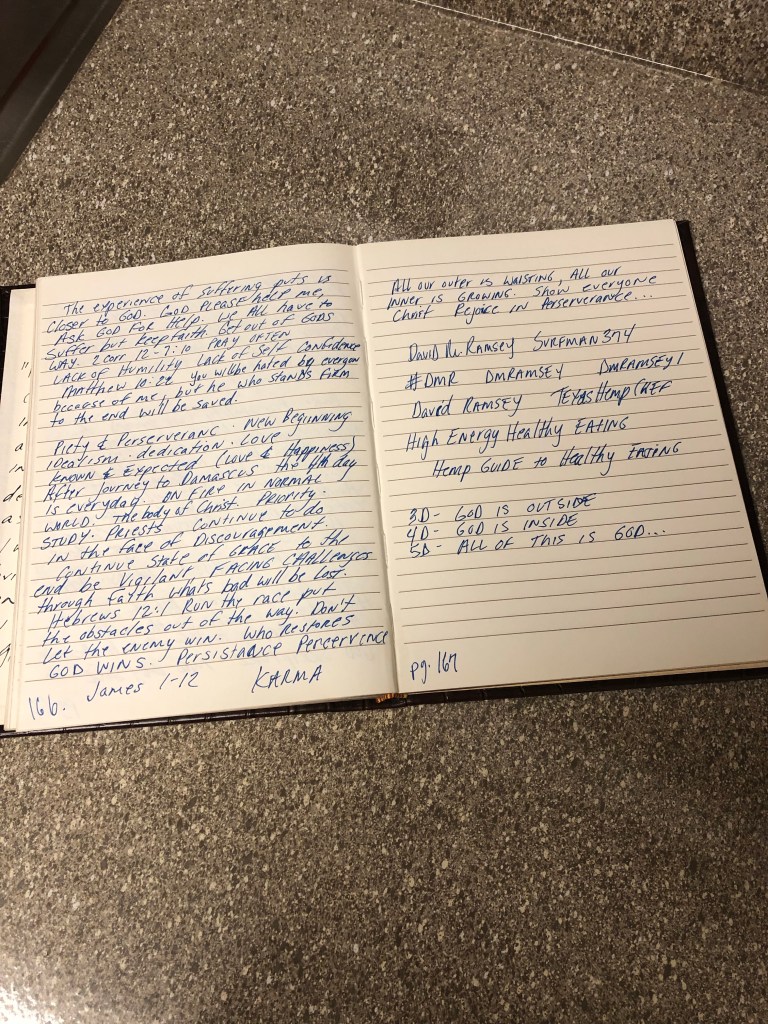 The experience of suffering puts us
closer to GOD. GOD PLEASE help me,
ASK GOD FOR Help. We All have to
Suffer but Keep Faith Get out of GODS
WAY. 2 corr 12-7:10 PRAY OFTEN
LACK of Humility Lack of Self Confidence
Matthew 10:22 you will be hated by everyone
because of me, but he who stands Firm
to the end will be saved.
Piety & Perserveranc. New Beginning
idealism. dedication. Love
Known & Expected (Love & Happiness)
After journey to Damascus the 4th day
is everyday. ON FIRE IN NORMAL
WORLD. The body of Christ. PRIORITY.
STUDY. PRIESTS CONTINUE to do
in the face of Discouragement.
Continue State of GRACE to the
end be Vigilant FACING CHALLENGES
through faith whats bad will be lost.
Hebrews 12:1 RUN the race put
the obstacles out of the way. Don't
Let the enemy win. Who RESTORES
GOD WINS. Persistance Percervience
166. James 1-12 KARMA
"
All our outer is WAISTING, All our
INNER is GROWING. Show everyone
Christ Rejoice in Perserverante...
David M. Ramsey SURFMAN374
#DMR DMRAMSEY DMRAMSEY1
David RAMSEY TEXAS Hemp CHEF
High ENERGY Healthy EATING
Hemp GUIDE to Healthy EATING
3D- GOD IS OUTSIDE
4D- GOD IS INSIDE
5D- ALL OF THIS IS GOD...
pg. 167